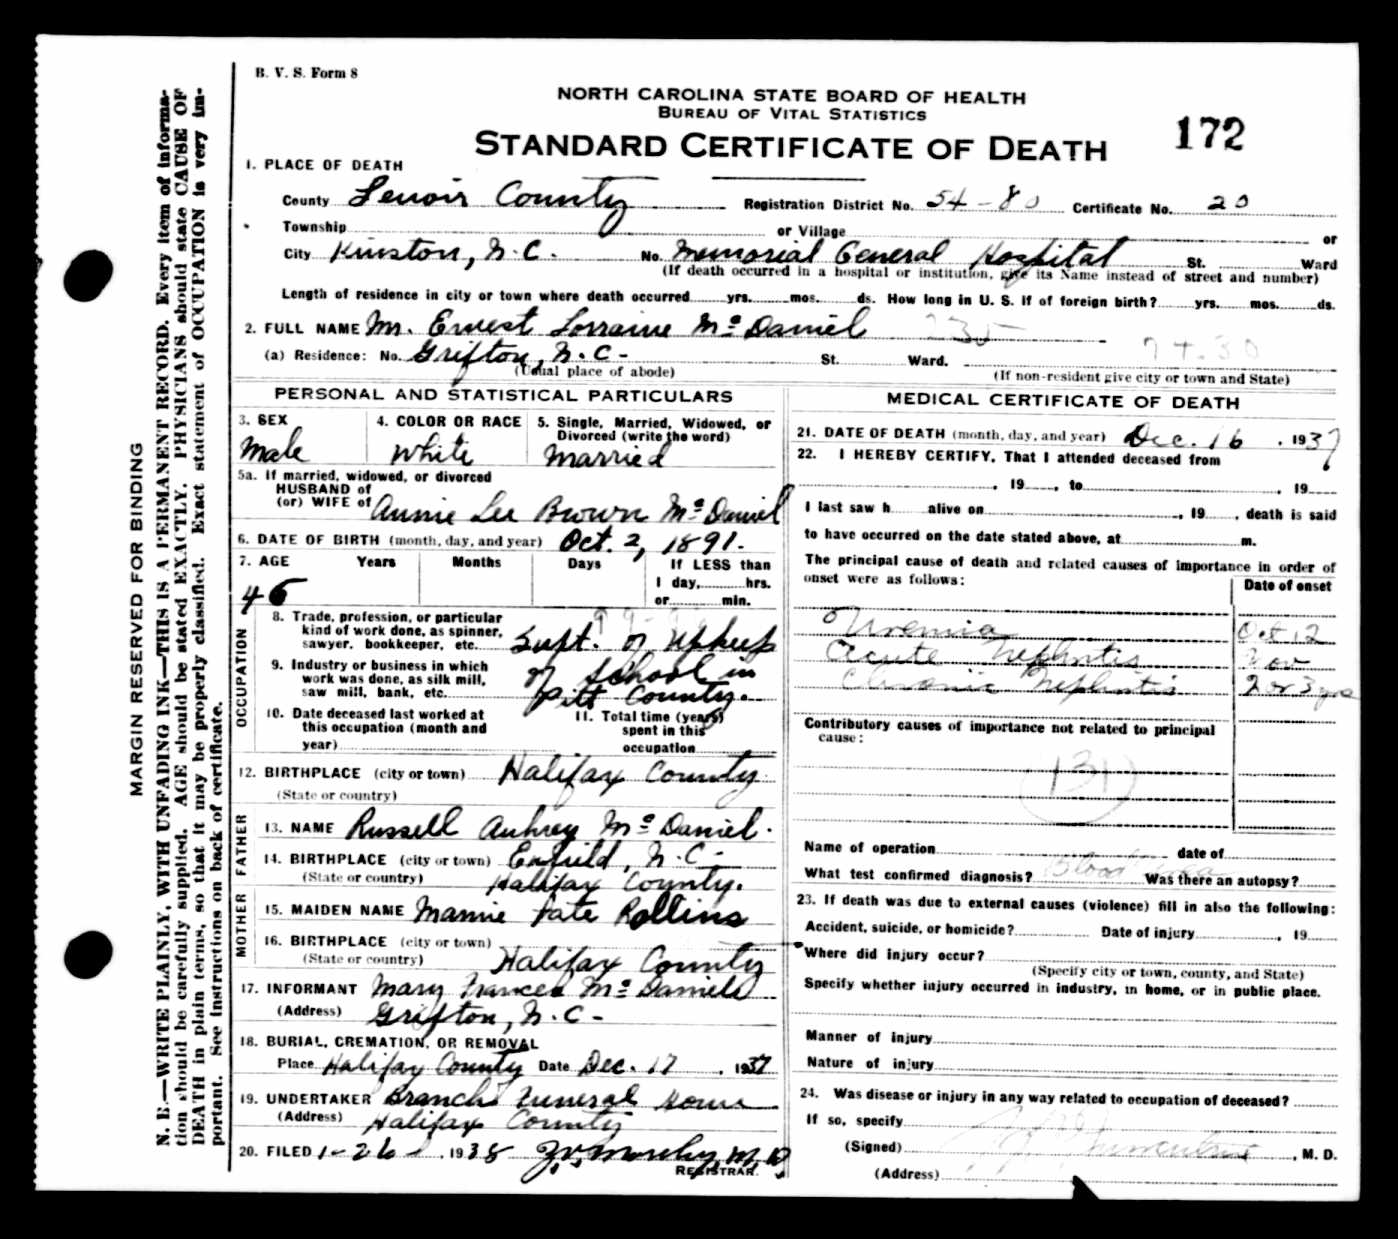 B. V. S. Form 8
NORTH CAROLINA STATE BOARD OF HEALTH
BUREAU OF VITAL STATISTICS
STANDARD CERTIFICATE OF DEATH
172
1. PLACE OF DEATH
County Lenoir County Registration District No. 54-80 Certificate No. 20
Township or Village or
City Kinston, N.C. No. Memorial General Hospital St. Ward
(If death occurred in a hospital or institution, give its Name instead of street and number)
Length of residence in city or town where death occurred yrs. mos. ds. How long in U. S. if of foreign birth? yrs. mos. ds.
2. FULL NAME Mr. Ernest Lorraine McDaniel 235
(a) Residence: No. Grifton, N.C. St. Ward. 74-30
(Usual place of abode) (If non-resident give city or town and State)
PERSONAL AND STATISTICAL PARTICULARS
3. SEX
Male
4. COLOR OR RACE
White
5. Single, Married, Widowed, or
Divorced (write the word)
Married
5a. If married, widowed, or divorced
HUSBAND of
(or) WIFE of Annie Lee Brown McDaniel
6. DATE OF BIRTH (month, day, and year) Oct. 2, 1891.
7. AGE Years Months Days If LESS than
1 day, hrs.
or min.
46
OCCUPATION
8. Trade, profession, or particular
kind of work done, as spinner,
sawyer, bookkeeper, etc. Supt. of Upkeep
9. Industry or business in which
work was done, as silk mill,
saw mill, bank, etc. of School in
Pitt County.
10. Date deceased last worked at
this occupation (month and
year)
11. Total time (years)
spent in this
occupation
12. BIRTHPLACE (city or town) Halifax County
(State or country)
FATHER
13. NAME Russell Aubrey McDaniel.
14. BIRTHPLACE (city or town) Enfield, N.C.
(State or country) Halifax County.
MOTHER
15. MAIDEN NAME Mamie Pate Rollins
16. BIRTHPLACE (city or town)
(State or country) Halifax County
17. INFORMANT Mary Frances McDaniel
(Address) Grifton, N.C.
18. BURIAL, CREMATION, OR REMOVAL
Place Halifax County Date Dec. 17, 1937
19. UNDERTAKER Branch Funeral Home
(Address) Halifax County
20. FILED 1-26-, 1938 M.D.
REGISTRAR.
MEDICAL CERTIFICATE OF DEATH
21. DATE OF DEATH (month, day, and year) Dec. 16, 1937
22. I HEREBY CERTIFY, That I attended deceased from
, 19 , to , 19
I last saw h alive on , 19 , death is said
to have occurred on the date stated above, at m.
The principal cause of death and related causes of importance in order of
onset were as follows:
Date of onset
Uremia Oct 12
Acute Nephritis Nov
Chronic Nephritis 2 or 3 yrs
Contributory causes of importance not related to principal
cause:
131
Name of operation date of
What test confirmed diagnosis? Blood Was there an autopsy?
23. If death was due to external causes (violence) fill in also the following:
Accident, suicide, or homicide? Date of injury , 19
Where did injury occur?
(Specify city or town, county, and State)
Specify whether injury occurred in industry, in home, or in public place.
Manner of injury
Nature of injury
24. Was disease or injury in any way related to occupation of deceased?
If so, specify
(Signed) , M. D.
(Address)
MARGIN RESERVED FOR BINDING
N. B.—WRITE PLAINLY, WITH UNFADING INK—THIS IS A PERMANENT RECORD. Every item of informa-
tion should be carefully supplied. AGE should be stated EXACTLY. PHYSICIANS should state CAUSE OF
DEATH in plain terms, so that it may be properly classified. Exact statement of OCCUPATION is very im-
portant. See instructions on back of certificate.